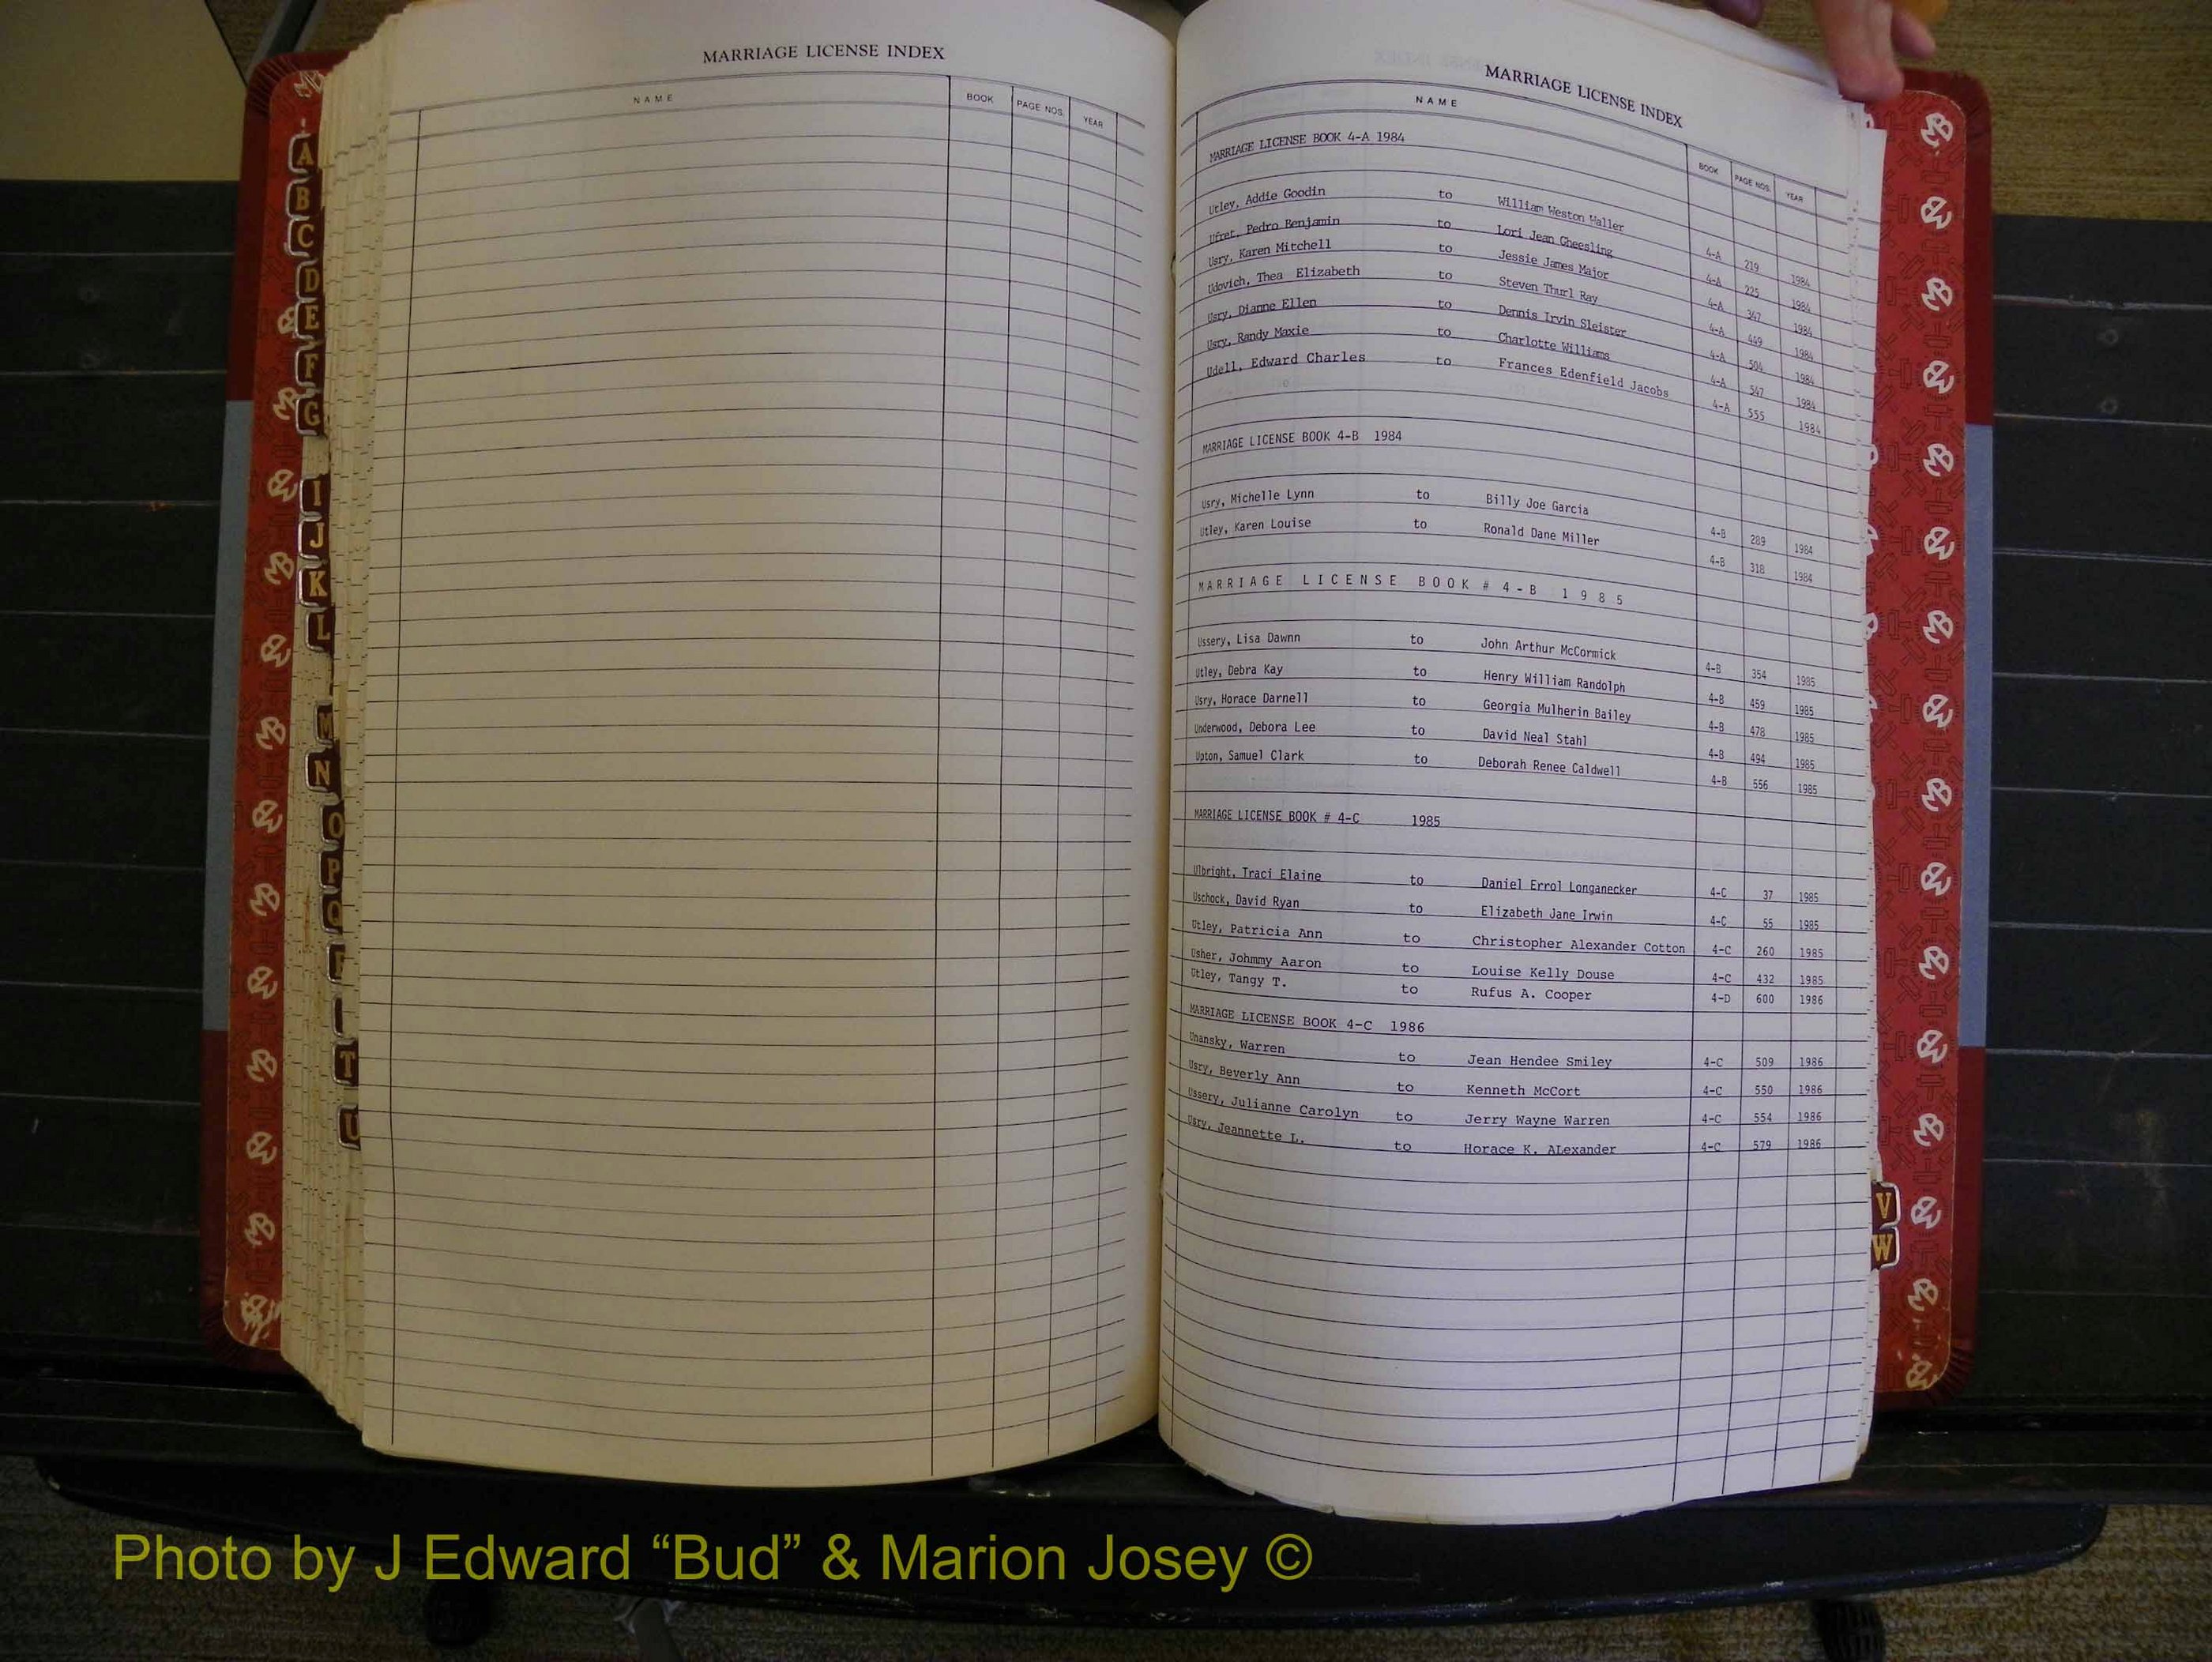 MARRIAGE LICENSE INDEX
NAME BOOK PAGE NOS. YEAR
MARRIAGE LICENSE INDEX
NAME BOOK PAGE NOS. YEAR
MARRIAGE LICENSE BOOK 4-A 1984
Utley, Addie Goodin to William Weston Waller 4-A 219 1984
Ufret, Pedro Benjamin to Lori Jean Gheesling 4-A 225 1984
Usry, Karen Mitchell to Jessie James Major 4-A 347 1984
Udovich, Thea Elizabeth to Steven Thurl Ray 4-A 449 1984
Usry, Dianne Ellen to Dennis Irvin Sleister 4-A 504 1984
Usry, Randy Maxie to Charlotte Williams 4-A 547 1984
Udell, Edward Charles to Frances Edenfield Jacobs 4-A 555 1984
MARRIAGE LICENSE BOOK 4-B 1984
Usry, Michelle Lynn to Billy Joe Garcia 4-B 289 1984
Utley, Karen Louise to Ronald Dane Miller 4-B 318 1984
MARRIAGE LICENSE BOOK # 4-B 1985
Ussery, Lisa Dawnn to John Arthur McCormick 4-B 354 1985
Utley, Debra Kay to Henry William Randolph 4-B 459 1985
Usry, Horace Darnell to Georgia Mulherin Bailey 4-B 478 1985
Underwood, Debora Lee to David Neal Stahl 4-B 494 1985
Upton, Samuel Clark to Deborah Renee Caldwell 4-B 556 1985
MARRIAGE LICENSE BOOK # 4-C 1985
Ulbright, Traci Elaine to Daniel Errol Longanecker 4-C 37 1985
Uschock, David Ryan to Elizabeth Jane Irwin 4-C 55 1985
Utley, Patricia Ann to Christopher Alexander Cotton 4-C 260 1985
Usher, Johmmy Aaron to Louise Kelly Douse 4-C 432 1985
Utley, Tangy T. to Rufus A. Cooper 4-D 600 1986
MARRIAGE LICENSE BOOK 4-C 1986
Unansky, Warren to Jean Hendee Smiley 4-C 509 1986
Usry, Beverly Ann to Kenneth McCort 4-C 550 1986
Ussery, Julianne Carolyn to Jerry Wayne Warren 4-C 554 1986
Usry, Jeannette L. to Horace K. ALexander 4-C 579 1986
A
B
C
D
E
F
G
I
J
K
L
M
N
O
P
Q
T
U
V
W
Photo by J Edward “Bud” & Marion Josey ©